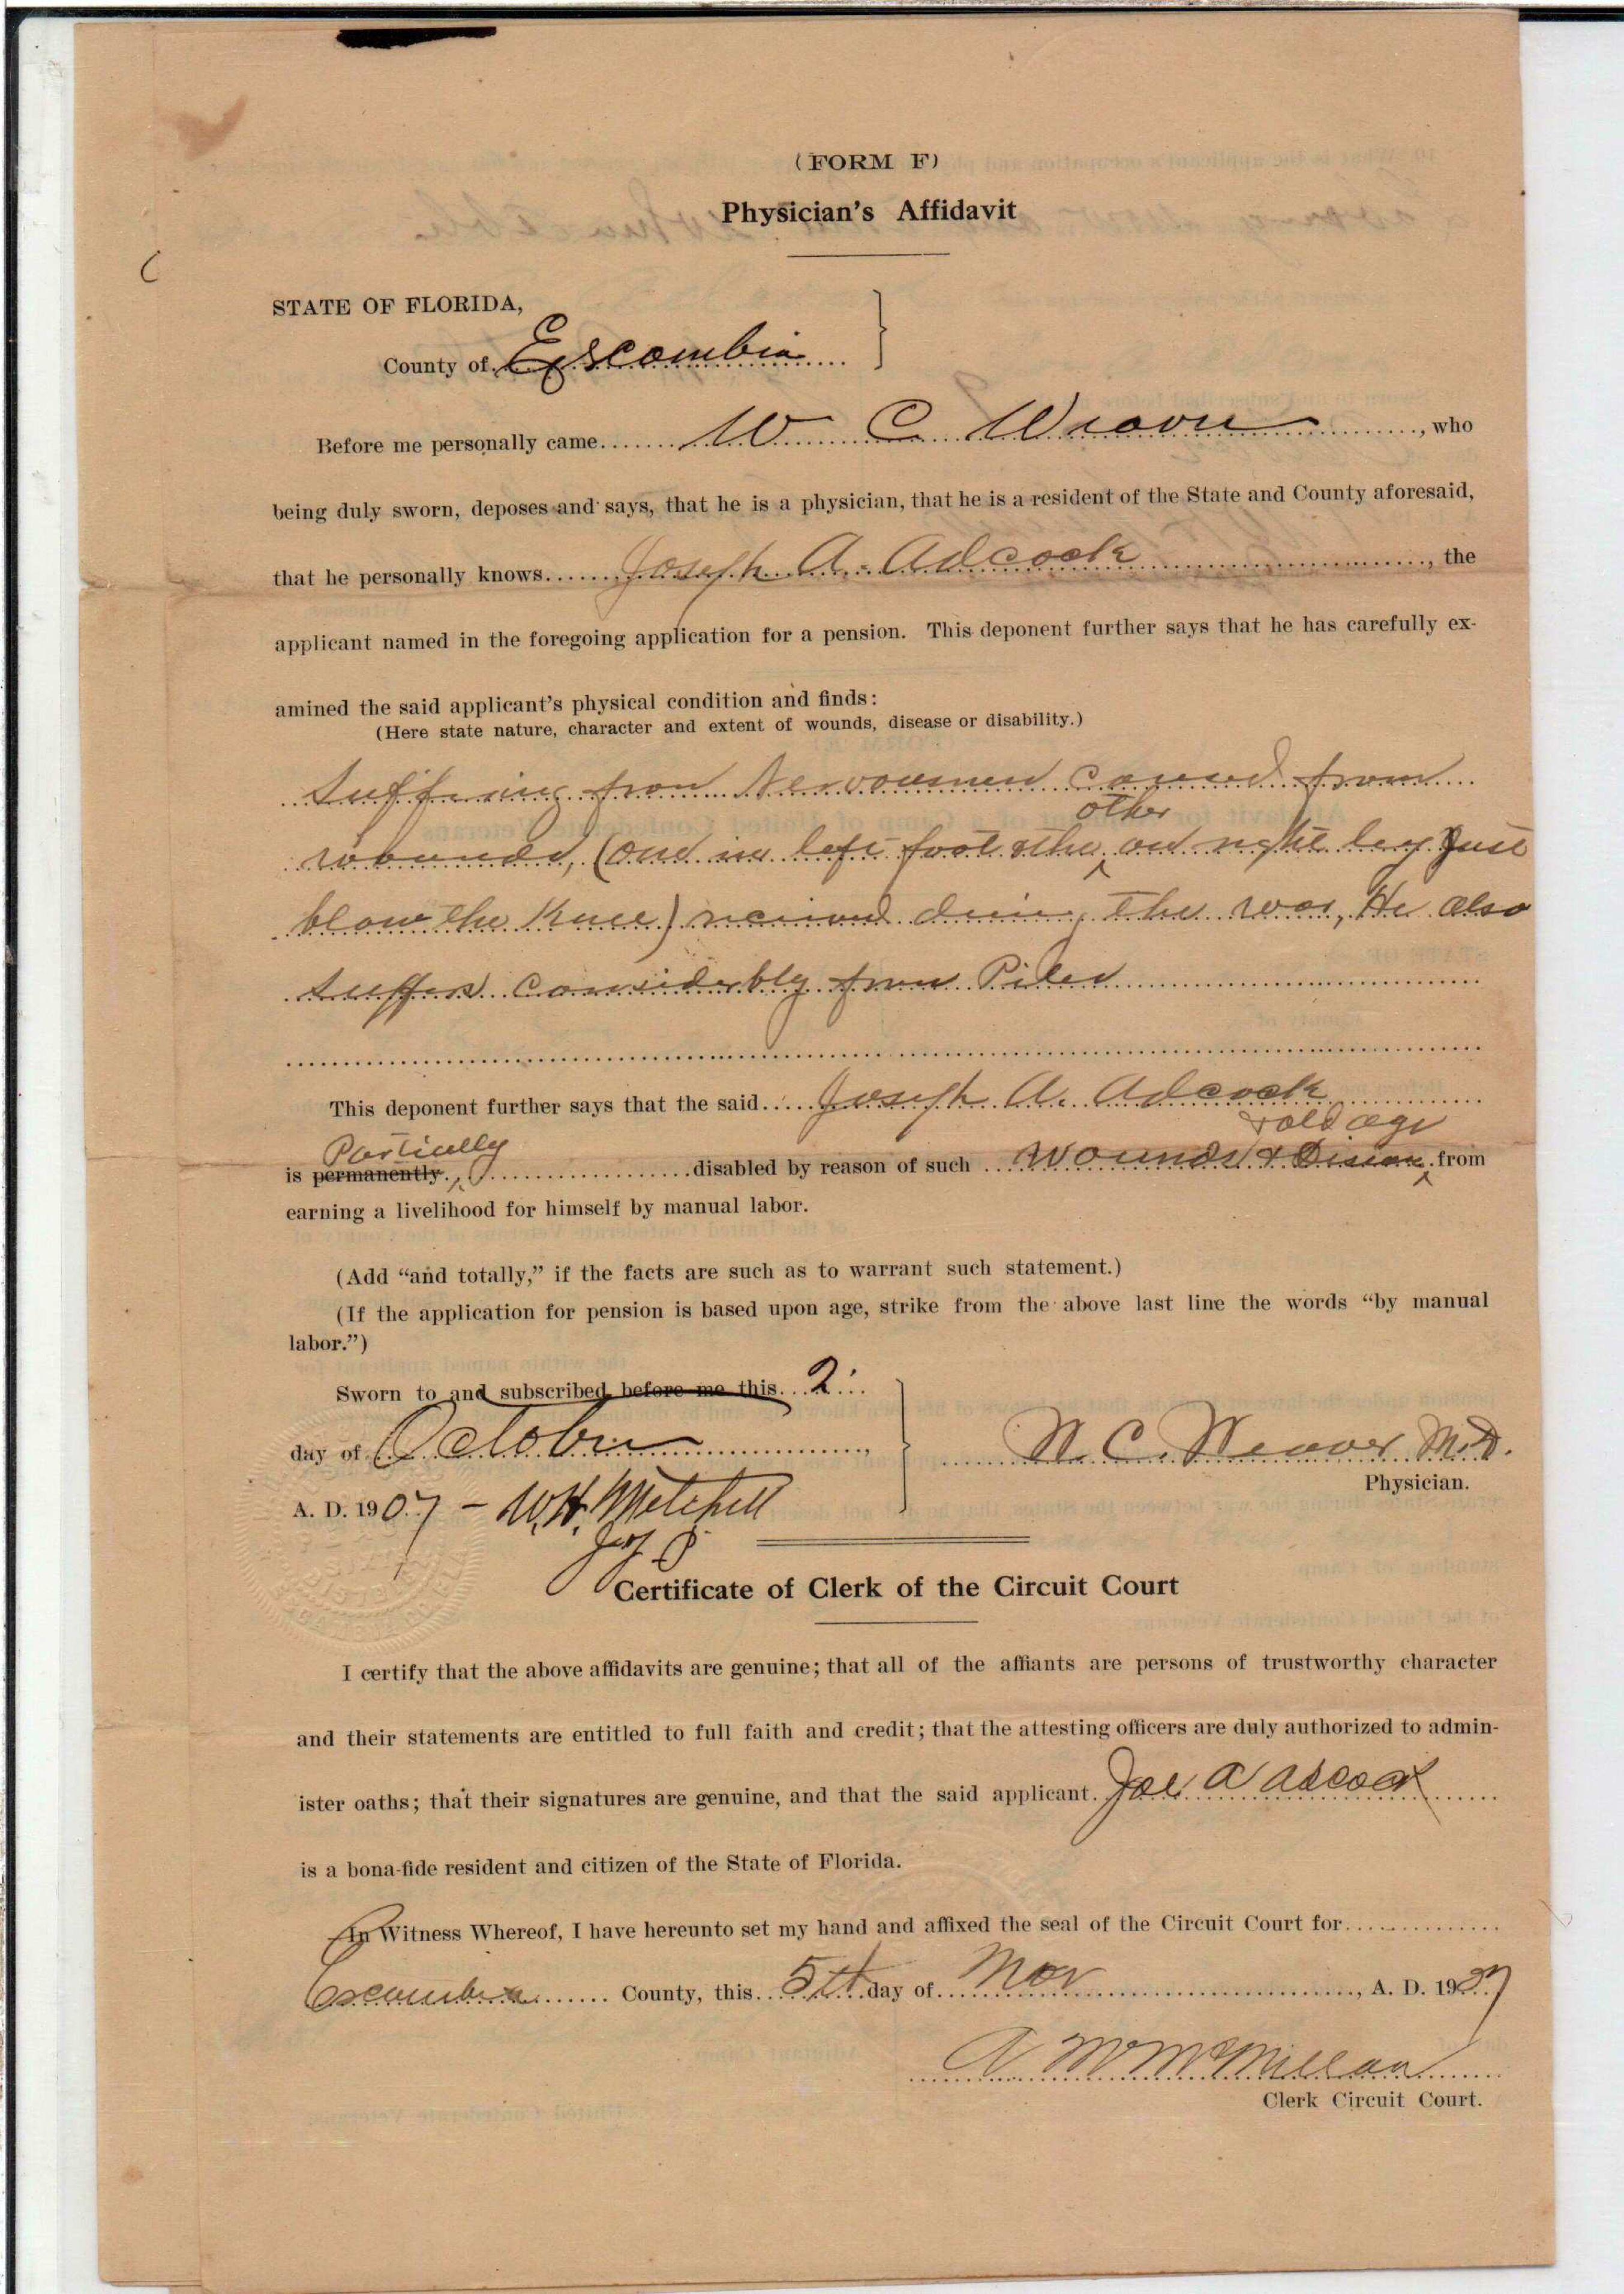 (FORM F)
Physician's Affidavit
STATE OF FLORIDA,
County of Escambia
Before me personally came W C Weaver, who
being duly sworn, deposes and says, that he is a physician, that he is a resident of the State and County aforesaid,
that he personally knows Joseph A. Adcock, the
applicant named in the foregoing application for a pension. This deponent further says that he has carefully ex-
amined the said applicant's physical condition and finds:
(Here state nature, character and extent of wounds, disease or disability.)
Suffering from Nervousness caused from
other
wounds, (one in left foot & the on right leg Just
blow the Knee) received during the war, He also
suffers considerbly from Piles
This deponent further says that the said Joseph A. Adcock
& old age
Partially
is permanently, disabled by reason of such wounds & Disease from
earning a livelihood for himself by manual labor.
(Add "and totally," if the facts are such as to warrant such statement.)
(If the application for pension is based upon age, strike from the above last line the words "by manual
labor.")
Sworn to and subscribed before me this 2
day of October,
W. C. Weaver M.D.
Physician.
A. D. 1907 - W.H. Mitchell
J of P
Certificate of Clerk of the Circuit Court
I certify that the above affidavits are genuine; that all of the affiants are persons of trustworthy character
and their statements are entitled to full faith and credit; that the attesting officers are duly authorized to admin-
ister oaths; that their signatures are genuine, and that the said applicant Joe A Adcock
is a bona-fide resident and citizen of the State of Florida.
In Witness Whereof, I have hereunto set my hand and affixed the seal of the Circuit Court for
Escambia County, this 5th day of Nov, A. D. 1907
A M McMillan
Clerk Circuit Court.